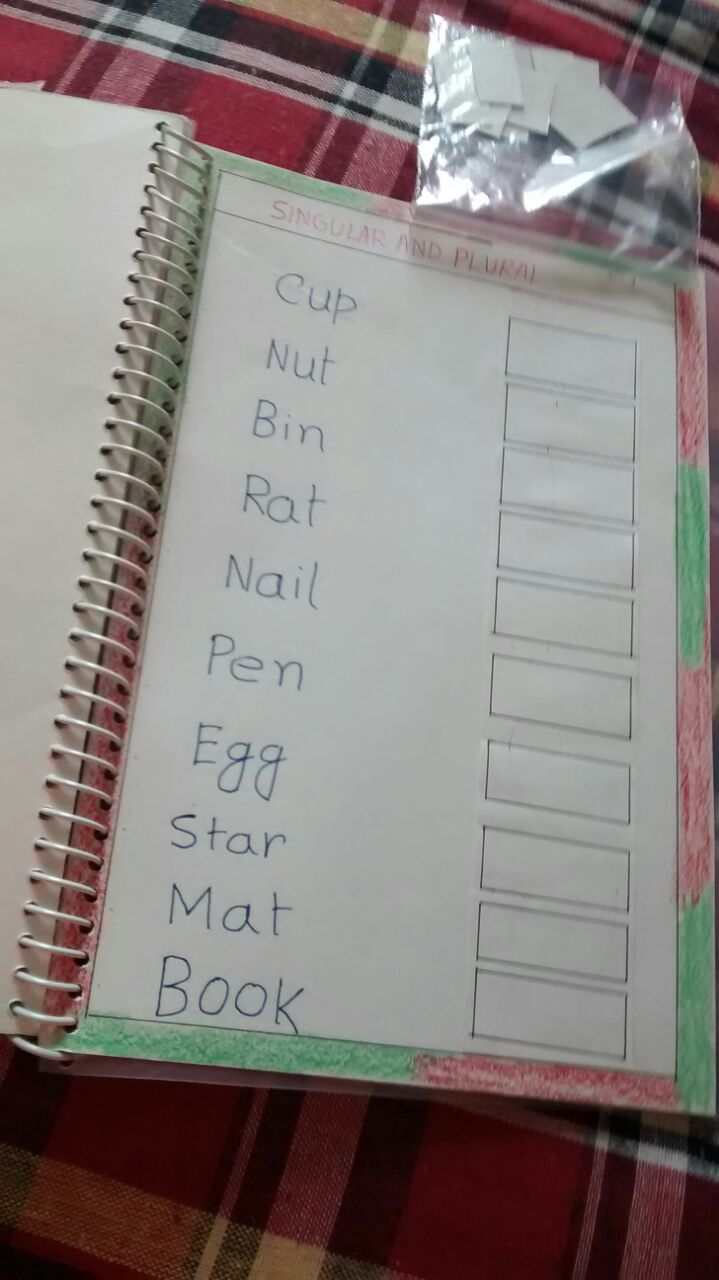 SINGULAR AND PLURAL
Cup
Nut
Bin
Rat
Nail
Pen
Egg
Star
Mat
BOOK